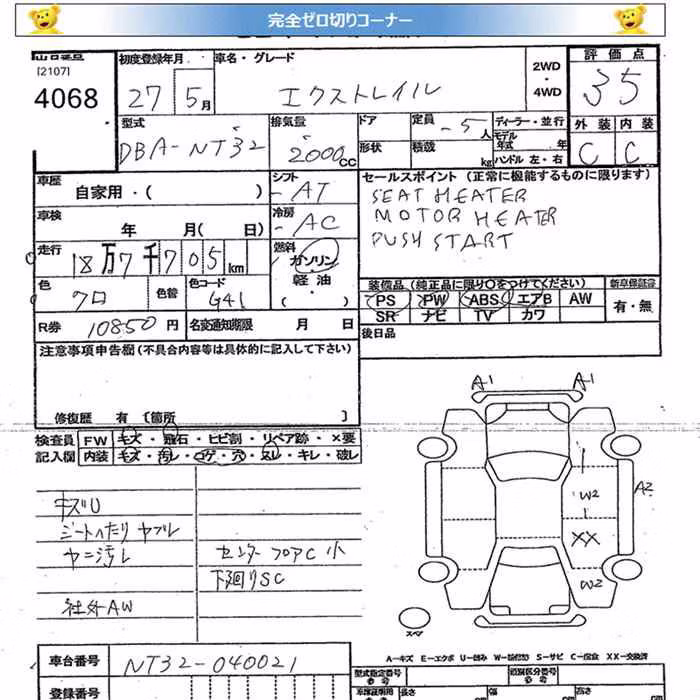 完全ゼロ切りコーナー
[2107]
4068
初度登録年月
27 5月
車名・グレード
エクストレイル
2WD
・
4WD
評価点
35
外装 内装
C C
型式
DBA-NT32
排気量
2000cc
ドア
形状
定員
-5人
積載
kg
ディーラー・並行
モデル
年式 年
ハンドル 左・右
車歴
自家用・( )
シフト
-AT
セールスポイント (正常に機能するものに限ります)
SEAT HEATER
MOTOR HEATER
PUSH START
車検
年 月( 日)
冷房
-AC
走行
18万7千705km
燃料
ガソリン
軽油
・( )
色
クロ
色替
色コード
G41
装備品 (純正品に限り○をつけてください)
新車保証書
PS PW ABS エアB AW
SR ナビ TV カワ
有・無
R券 10850円
名変通知期限 月 日
後日品
注意事項申告欄 (不具合内容等は具体的に記入して下さい)
修復歴 有 〔箇所 〕
検査員
記入欄
FW キズ・飛石・ヒビ割・リペア跡・×要
内装 キズ・汚レ・コゲ・穴・スレ・キレ・破レ
キズU
シートへたり ヤブレ
ヤニ汚レ
センターフロアC 小
下廻りSC
社外AW
A1
A1
A2
W2
XX
W2
スペア
A-キズ E-エクボ U-凹み W-波(跡) S-サビ C-腐食 XX-交換済
車台番号
NT32-040021
登録番号
型式指定番号
参考
類別区分番号
参考
車庫証明用
参考
長さ
幅
高さ